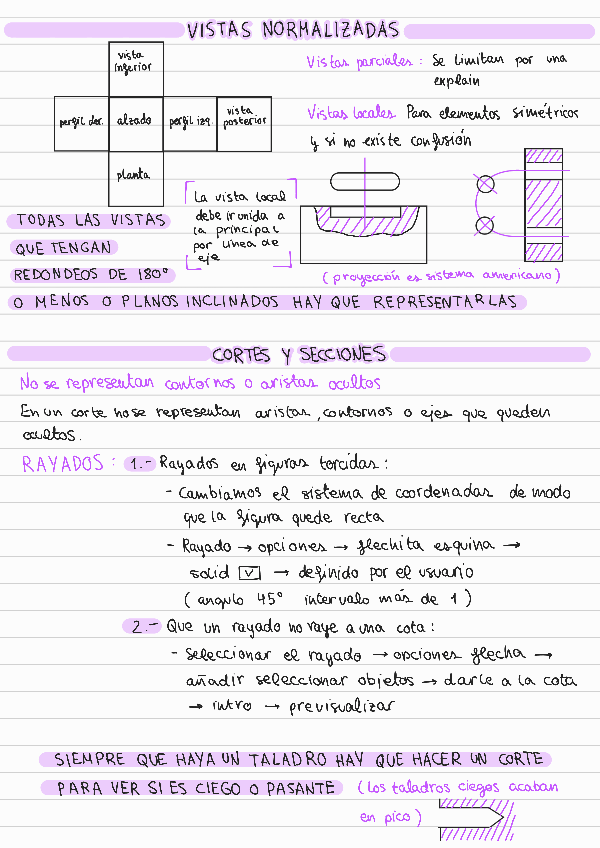 VISTAS NORMALIZADAS
vista
inferior
perfil der.
alzado
perfil izq.
vista
posterior
planta
Vistas parciales : Se limitan por una
explain
Vistas locales Para elementos simétricos
y si no existe confusión
La vista local
debe ir unida a
la principal
por línea de
eje
(proyección es sistema americano)
TODAS LAS VISTAS
QUE TENGAN
REDONDEOS DE 180°
O MENOS O PLANOS INCLINADOS HAY QUE REPRESENTARLAS
CORTES Y SECCIONES
No se representan contornos o aristas ocultos
En un corte no se representan aristas, contornos o ejes que queden
ocultos.
RAYADOS : 1.- Rayados en figuras torcidas :
- Cambiamos el sistema de coordenadas de modo
que la figura quede recta
- Rayado → opciones → flechita esquina →
solid V → definido por el usuario
( angulo 45° intervalo más de 1 )
2.- Que un rayado no raye a una cota :
- Seleccionar el rayado → opciones flecha →
añadir seleccionar objetos → darle a la cota
→ intro → previsualizar
SIEMPRE QUE HAYA UN TALADRO HAY QUE HACER UN CORTE
PARA VER SI ES CIEGO O PASANTE (los taladros ciegos acaban
en pico)